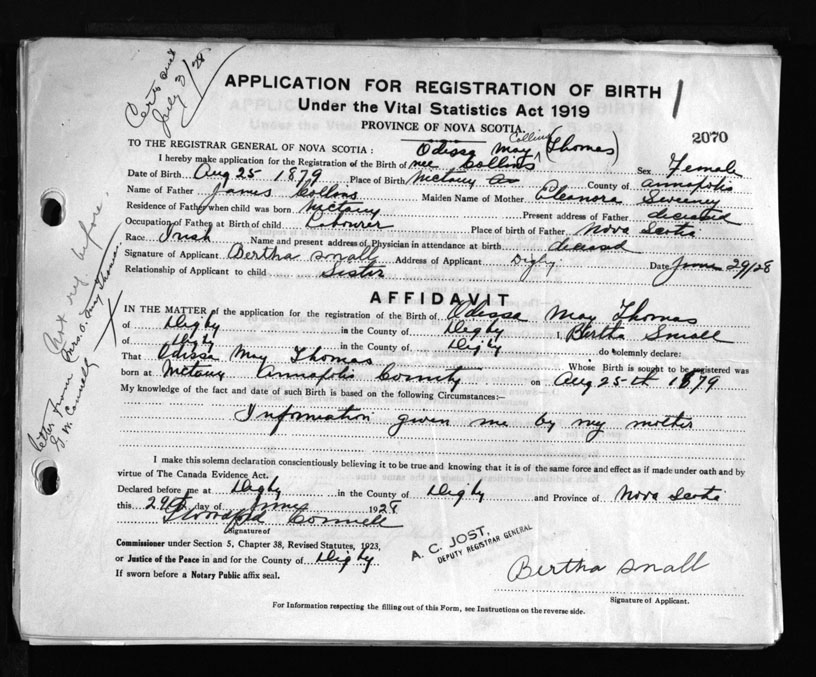 Cert sent
July 3/28
APPLICATION FOR REGISTRATION OF BIRTH
Under the Vital Statistics Act 1919
PROVINCE OF NOVA SCOTIA.
2070
Collins
TO THE REGISTRAR GENERAL OF NOVA SCOTIA : Odissa May (Thomas)
I hereby make application for the Registration of the Birth of nee Collins Sex Female
Date of Birth Aug 25 1879 Place of Birth Mctany County of Annapolis
Name of Father James Collons Maiden Name of Mother Eleanora Sweeney
Residence of Father when child was born Mctany Present address of Father deceased
Occupation of Father at Birth of child Labourer Place of birth of Father Nova Scotia
Race Irish Name and present address of Physician in attendance at birth deceased
Signature of Applicant Bertha Small Address of Applicant Digby Date June 29/28
Relationship of Applicant to child Sister
AFFIDAVIT
IN THE MATTER of the application for the registration of the Birth of Odissa May Thomas
of Digby in the County of Digby I, Bertha Small
of Digby in the County of Digby do solemnly declare:
That Odissa May Thomas Whose Birth is sought to be registered was
born at Mctany Annapolis County on Aug 25th 1879
My knowledge of the fact and date of such Birth is based on the following Circumstances:—
Information given me by my mother
I make this solemn declaration conscientiously believing it to be true and knowing that it is of the same force and effect as if made under oath and by
virtue of The Canada Evidence Act.
Declared before me at Digby in the County of Digby and Province of Nova Scotia
this 29th day of June 1928
Connell
Signature of
Commissioner under Section 5, Chapter 38, Revised Statutes, 1923,
or Justice of the Peace in and for the County of Digby
If sworn before a Notary Public affix seal.
A. C. JOST,
DEPUTY REGISTRAR GENERAL
Bertha Small
Signature of Applicant.
For Information respecting the filling out of this Form, see Instructions on the reverse side.
Not reg before.
letter from Mrs. O. May Thomas.
G. W. Connell